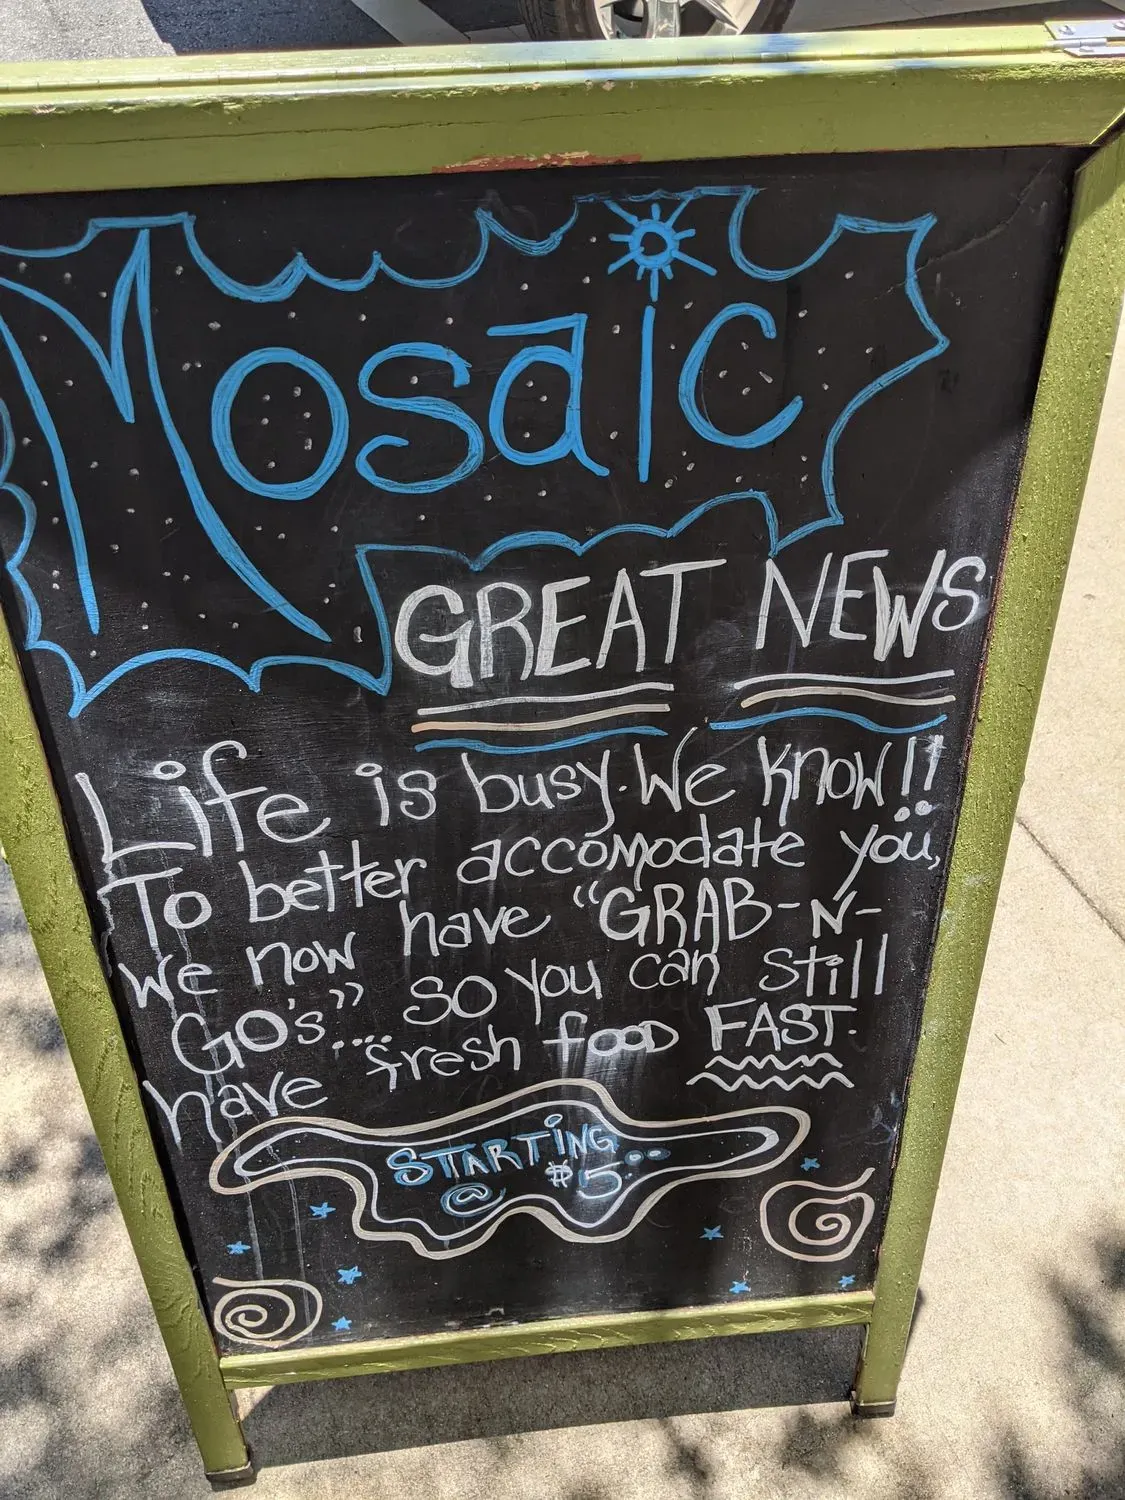 Mosaic
GREAT NEWS
Life is busy. We know!!
To better accomodate you,
we now have "GRAB-N-
GO's"... so you can still
have fresh food FAST.
STARTING
@ $5...